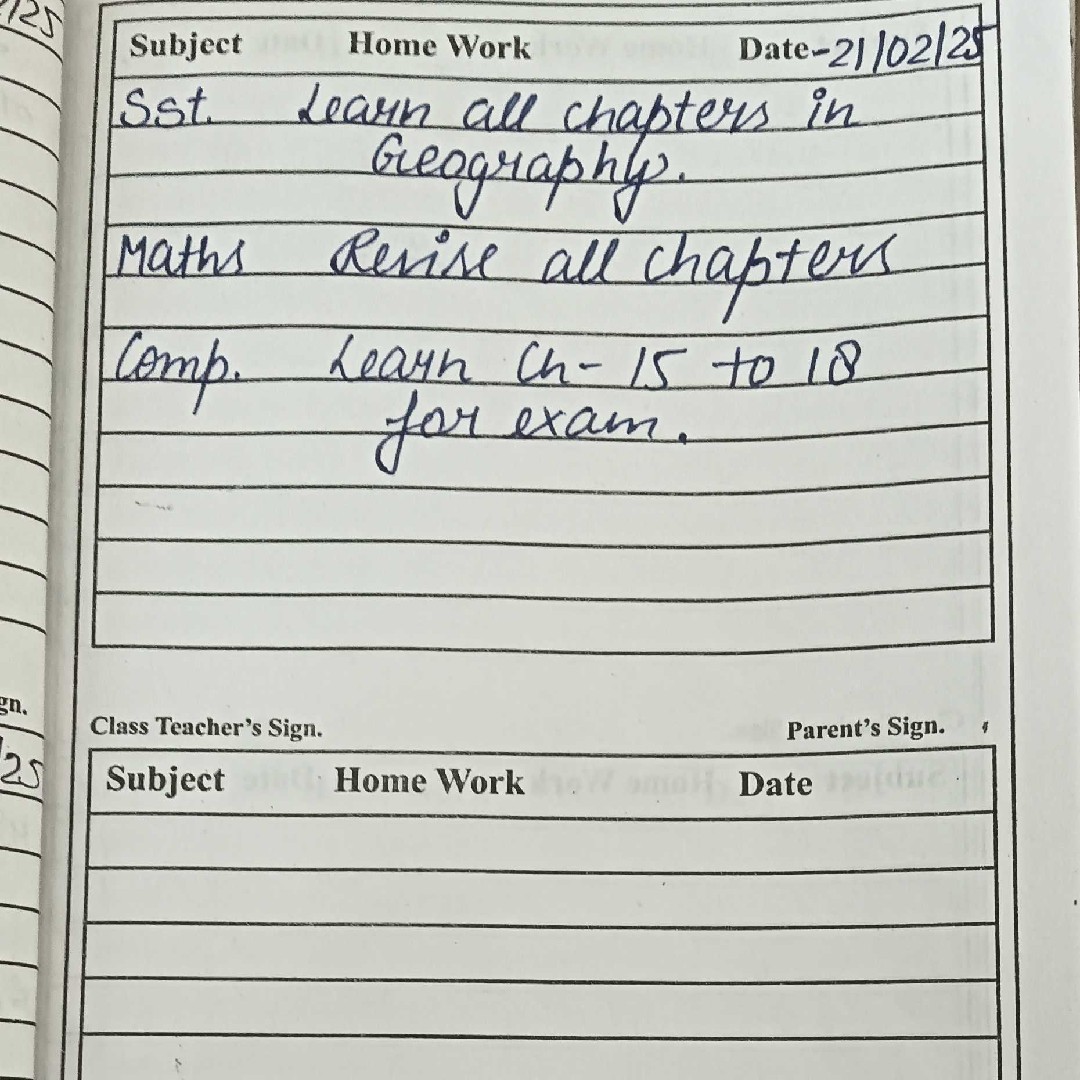 /25
Subject Home Work Date-21/02/25
Sst. Learn all chapters in
Geography.
Maths Revise all chapters
Comp. Learn Ch- 15 to 18
for exam.
gn.
Class Teacher's Sign. Parent's Sign.
/25
Subject Home Work Date